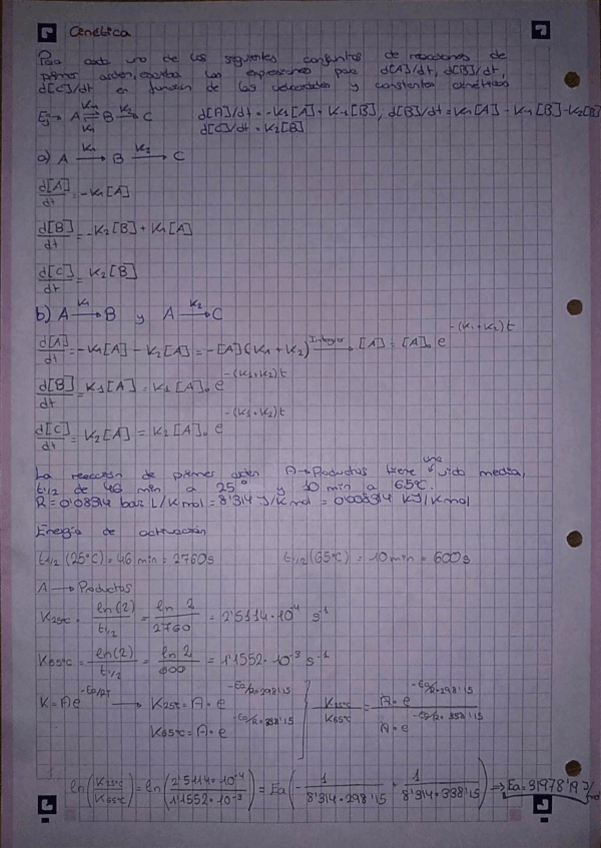 Cinética
Para cada uno de los siguientes conjuntos de reacciones de
primer orden, escriba las expresiones para d[A]/dt, d[B]/dt,
d[C]/dt en función de las velocidades y constantes cinéticas
Ej→ A ⇌ B → C K₁ K₋₁ K₂ d[A]/dt = -K₁[A] + K₋₁[B], d[B]/dt = K₁[A] - K₋₁[B] - K₂[B]
d[C]/dt = K₂[B]
a) A —K₁→ B —K₂→ C
d[A]/dt = -K₁[A]
d[B]/dt = -K₂[B] + K₁[A]
d[C]/dt = K₂[B]
b) A —K₁→ B y A —K₂→ C
d[A]/dt = -K₁[A] - K₂[A] = -[A](K₁ + K₂) —Integrar→ [A] = [A]₀ e^-(K₁+K₂)t
d[B]/dt = K₁[A] = K₁[A]₀ e^-(K₁+K₂)t
d[C]/dt = K₂[A] = K₂[A]₀ e^-(K₁+K₂)t
La reacción de primer orden A→Productos tiene una vida media,
t1/2 de 46 min a 25° y 10 min a 65°C.
R = 0'08314 bar L/K mol = 8'314 J/K mol = 0'008314 KJ/K mol
Energía de activación
t1/2 (25°C) = 46 min = 2760s t1/2 (65°C) = 10 min = 600s
A → Productos
K25°C = ln(2)/t1/2 = ln 2/2760 = 2'5114·10⁻⁴ s⁻¹
K65°C = ln(2)/t1/2 = ln 2/600 = 1'1552·10⁻³ s⁻¹
K = Ae^-Ea/RT → K25°C = A·e^-Ea/R·298'15 K25°C/K65°C = A·e^-Ea/R·298'15 / A·e^-Ea/R·338'15
K65°C = A·e^-Ea/R·338'15
ln(K25°C/K65°C) = ln(2'5114·10⁻⁴/1'1552·10⁻³) = Ea(-1/8'314·298'15 + 1/8'314·338'15) ⇒ Ea = 31978'19 J/mol